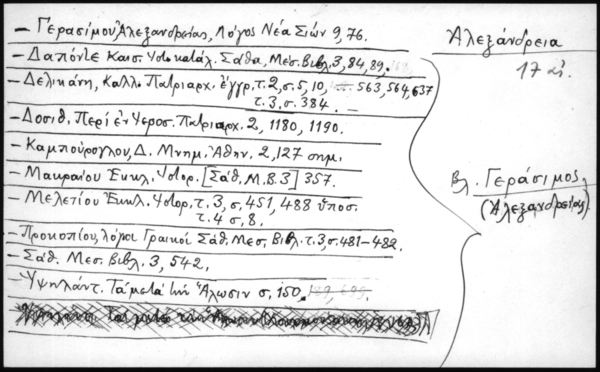 — Γερασίμου Ἀλεξανδρείας, Λόγος Νέα Σιών 9, 76.
— Δαπόντε Καισ. Ἱστ. κατάλ. Σάθα, Μεσ. Βιβλ. 3, 84, 89.
— Δελικάνη, Καλλ. Πατριαρχ. ἔγγρ. τ. 2, σ. 5, 10, 563, 564, 637
τ. 3, σ. 384. —
— Δοσιθ. Περί ἐν Ἱεροσ. Πατριαρχ. 2, 1180, 1190.
— Καμπούρογλου, Δ. Μνημ. Ἀθην. 2, 127 σημ.
— Μακραίου Ἐκκλ. Ἱστορ. [Σάθ. Μ.Β.3] 357.
— Μελετίου Ἐκκλ. Ἱστορ. τ. 3, σ. 451, 488 ὑποσ.
τ. 4 σ, 8.
— Προκοπίου, λόγιοι Γραικοί Σάθ. Μεσ. Βιβλ. τ. 3, σ. 481–482.
— Σάθ. Μεσ. Βιβλ. 3, 542.
— Ὑψηλάντ. Τά μετά τήν Ἅλωσιν σ, 150.
Ἀλεξάνδρεια
17 αἰ.
Βλ. Γεράσιμος
(Ἀλεξανδρείας)